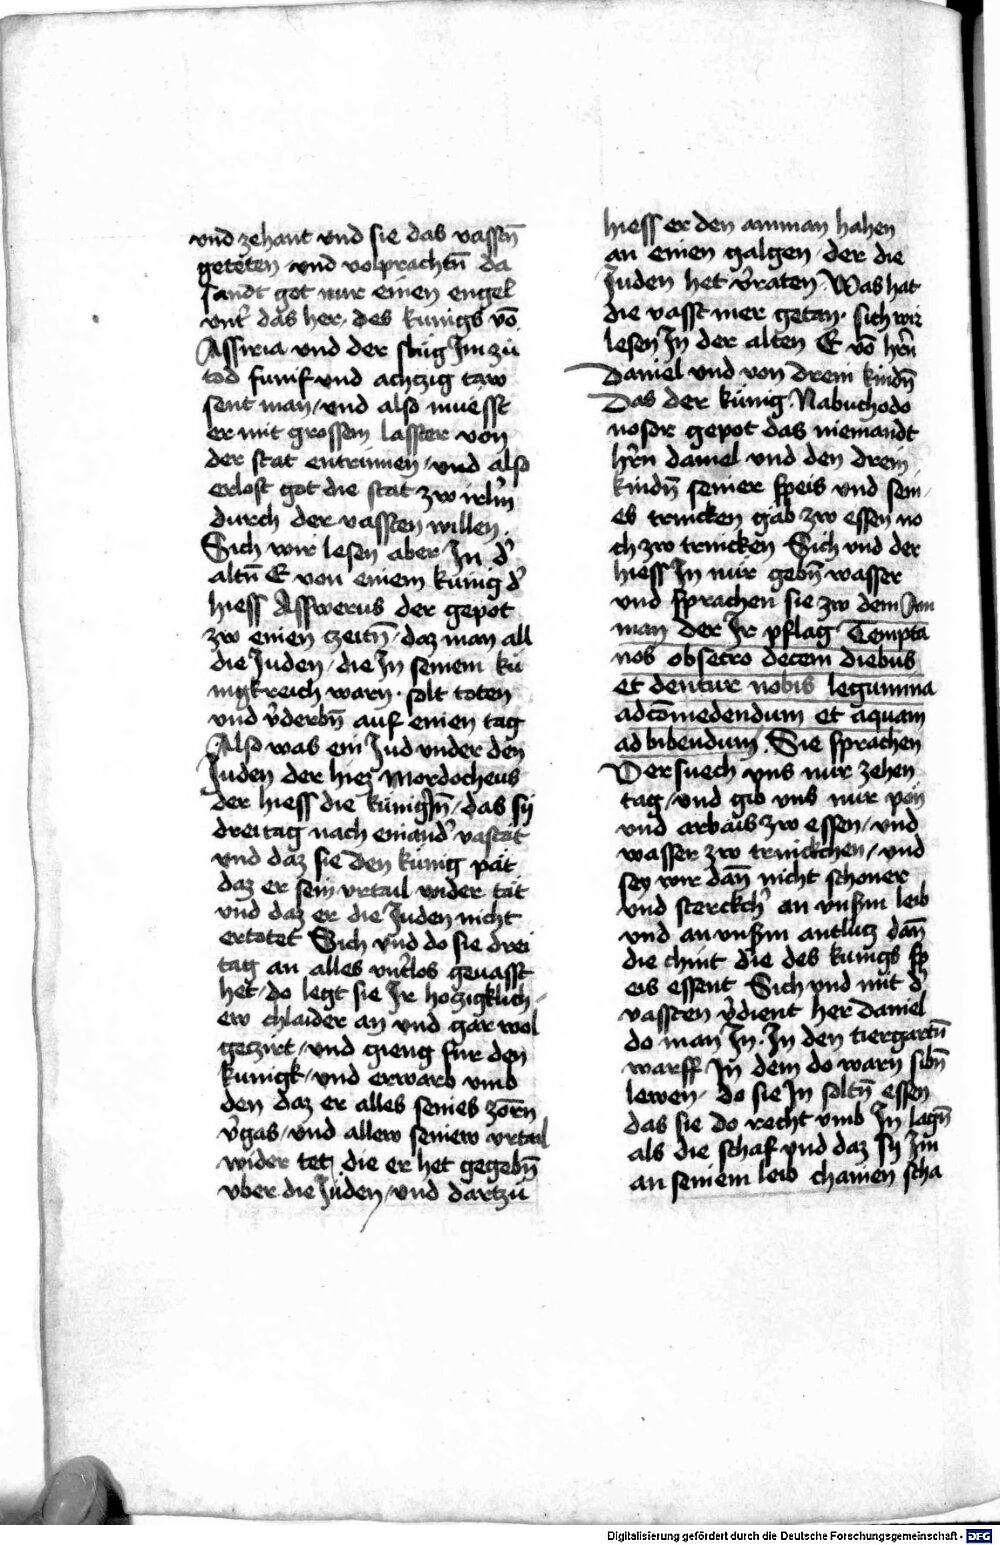 vnd zehant vnd sie das vasstn̄
geteten vnd volprachtn̄ da
sandt got nur einen engel
vnt̉ das her, des kunigs vō
Assiria vnd der slug Im zu
tod funf vnd achtzig taw
sent man / vnd also muesst
er mit grossem lasster von
der stat entrinnen / vnd also
erlost got die stat zw irlm̄
durch der vassten willen .
Sich wir lesen aber In d̉
altn̄ E von einem kunig d̉
hiess Asswerus der gepot
zw einen czeitn̄ / daz man all
die Juden / die In seinem ku
nigkreich warn . solt toten
vnd v̉derbn̄ auf einen tag
Also was ein Jud vnder den
Juden der hiez Mordocheus
der hiess die kunigin̄ / das sy
drei tag nach einand̉ vastat
vnd daz sie den kunig pat
daz er sein vrtail wider tat
vnd daz er die Juden nicht
ertotet Sich vnd do sie drei
tag an alles vnt̉los geuasst
het / do legt sie Ir hochzigklich-
ew chlaider an vnd gar wol
geczirt / vnd gieng fur den
kunigk / vnd erwarb vmb
den daz er alles seines zorn̄
v̉gas / vnd allew seinew vrtail
wider tet die er het gegebn̄
vber die Juden / vnd dartzu
hiess er den amman hahen
an einen galgen der die
Juden het v̉raten . Was hat
die vasst mer getan . sich wir
lesen In der alten E vō hr̄n
Daniel vnd von drein kindn̄
Das der kunig . Nabuchodo
nosor gepot das niemandt
hr̄n daniel vnd den drein
kindn̄ seiner speis vnd sein-
es trincken gab zw essen no
ch zw trincken Sich vnd der
hiess In nur gebn̄ wasser
vnd sprachen sie zw dem Am
man der Ir pflag Tempta
nos obsecro decem diebus
et dentur nobis legumina
ad cōmedendum et aquam
ad bibendum . Sie sprachen
Versuech vns nur zehen
tag / vnd gib vns nur pon
vnd arbais zw essen / vnd
wasser zw trinckchen / vnd
sey wir dan̄ nicht schoner
vnd sterckch̉ an vnsm leib
vnd an vnsm antlucz dan̄
die chint die des kunigs sp
eis essent Sich vnd mit d̉
vassten v̉dient her Daniel
do man In . In den tiergartn̄
warff In dem do warn sibn̄
lewen / do sie In soltn̄ essen
das sie do recht vmb In lagn̄
als die schaf vnd daz sy Im
an seinem leib chainen scha
Digitalisierung gefördert durch die Deutsche Forschungsgemeinschaft - DFG